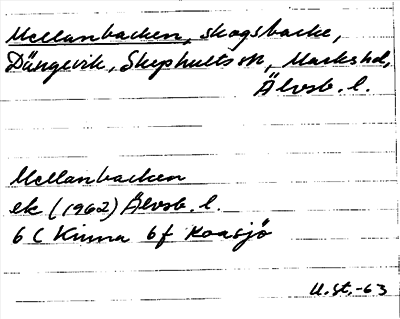 Mellanbacken, skogsbacke,
Dängevik, Skephults sn, Marks hd,
Älvsb. l.
Mellanbacken
ek (1962) Älvsb. l.
6 C Kinna 6f Roasjö
U.st.-63